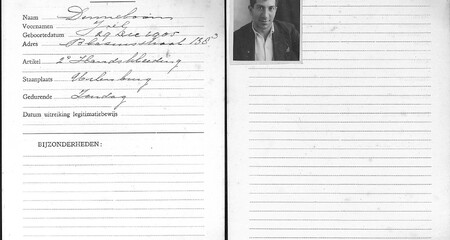 Naam Denneboom
Voornamen Joël
Geboortedatum 19 Dec 1905
Adres Blasiusstraat 138³
Artikel 2e Handskleeding
Staanplaats Uilenburg
Gedurende Zondag
Datum uitreiking legitimatiebewijs
BIJZONDERHEDEN: